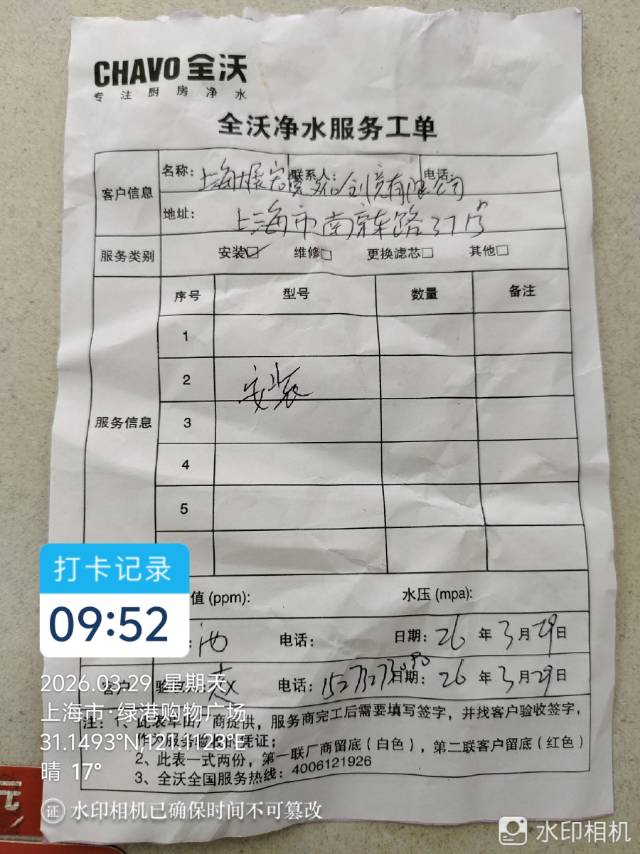 CHAVO 全沃
专注厨房净水
全沃净水服务工单
客户信息
名称： 上海 有限公司 联系人： 电话：
地址： 上海市南 路37号
服务类别 安装☑ 维修□ 更换滤芯□ 其他□
服务信息
序号 型号 数量 备注
1
2 安装
3
4
5
值 (ppm): 水压 (mpa):
电话： 日期：26年3月29日
客户 验 电话： 日期：26年3月29日
注：1、此表单由厂商提供，服务商完工后需要填写签字，并找客户验收签字，
作为服务 凭证；
2、此表一式两份，第一联厂商留底（白色），第二联客户留底（红色）
3、全沃全国服务热线：4006121926
打卡记录
09:52
2026.03.29 星期天
上海市·绿港购物广场
31.1493°N,121.1123°E
晴 17°
证 水印相机已确保时间不可篡改
水印相机